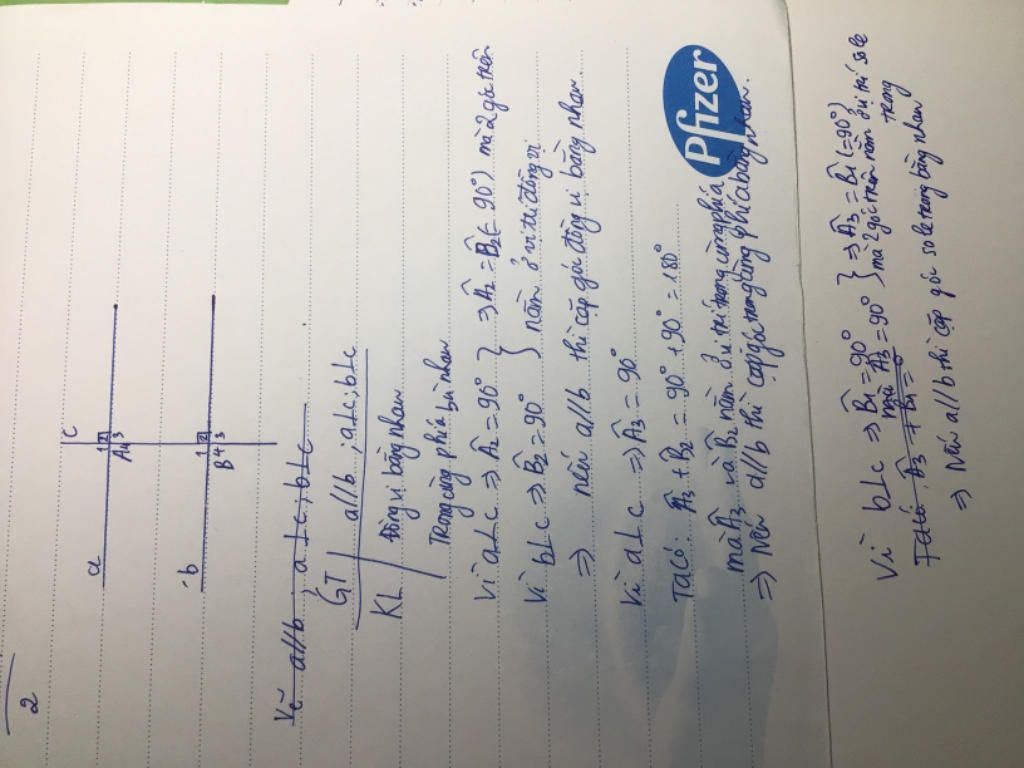 2
c
a
1 2
A 4 3
b
1 2
B 4 3
Vẽ a//b ; a⊥c ; b⊥c
GT a//b ; a⊥c ; b⊥c
KL Đồng vị bằng nhau
Trong cùng phía bù nhau
Vì a⊥c ⇒ Â2 = 90° } ⇒ Â2 = B̂2 (= 90°) mà 2 góc trên
Vì b⊥c ⇒ B̂2 = 90° } nằm ở vị trí đồng vị
⇒ nếu a//b thì cặp góc đồng vị bằng nhau.
Vì a⊥c ⇒ Â3 = 90°
Ta có: Â3 + B̂2 = 90° + 90° = 180°
mà Â3 và B̂2 nằm ở vị trí trong cùng phía
⇒ Nếu a//b thì cặp góc trong cùng phía bằng nhau.
Pfizer
Vì b⊥c ⇒ B̂1 = 90° } ⇒ Â3 = B̂1 (= 90°)
mà Â3 = 90° } mà 2 góc trên nằm ở vị trí so le trong
Ta có: Â3 + B̂1 =
⇒ Nếu a//b thì cặp góc so le trong bằng nhau